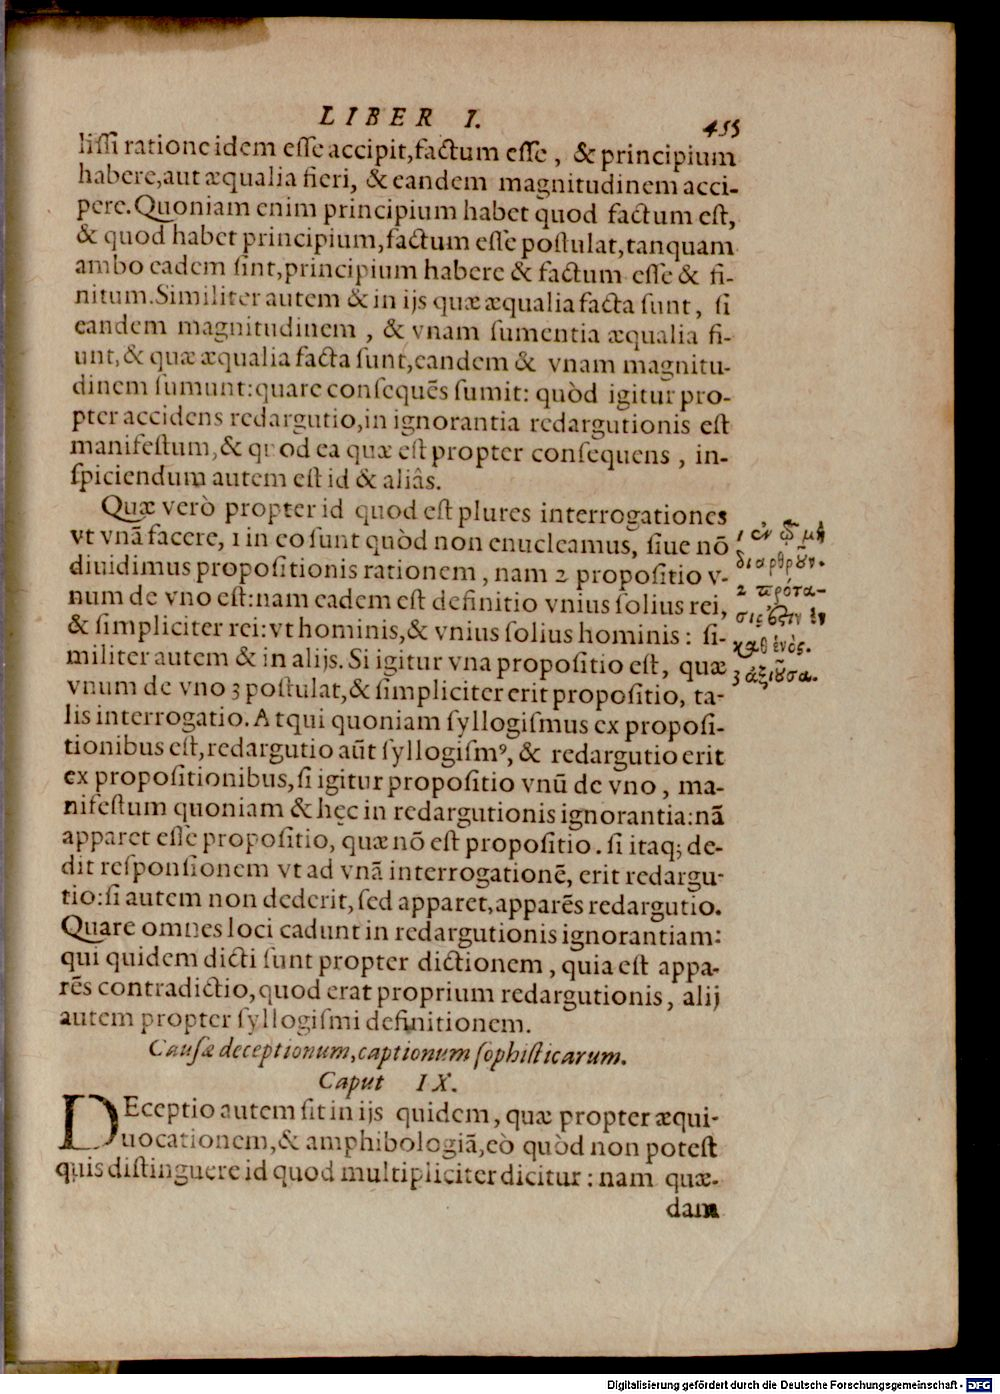 LIBER I. 455
lissi ratione idem esse accipit,factum esse, & principium
habere,aut æqualia fieri, & eandem magnitudinem acci-
pere.Quoniam enim principium habet quod factum est,
& quod habet principium,factum esse postulat,tanquam
ambo eadem sint,principium habere & factum esse & fi-
nitum.Similiter autem & in ijs quæ æqualia facta sunt, si
eandem magnitudinem, & vnam sumentia æqualia fi-
unt,& quæ æqualia facta sunt,eandem & vnam magnitu-
dinem sumunt:quare consequẽs sumit: quòd igitur pro-
pter accidens redargutio,in ignorantia redargutionis est
manifestum,& quod ea quæ est propter consequens, in-
spiciendum autem est id & aliâs.
Quæ verò propter id quod est plures interrogationes
vt vnã facere, 1 in eo sunt quòd non enucleamus, siue nõ
diuidimus propositionis rationem, nam 2 propositio v-
num de vno est:nam eadem est definitio vnius solius rei,
& simpliciter rei:vt hominis,& vnius solius hominis: si-
militer autem & in alijs. Si igitur vna propositio est, quæ
vnum de vno 3 postulat,& simpliciter erit propositio, ta-
lis interrogatio. Atqui quoniam syllogismus ex proposi-
tionibus est,redargutio aũt syllogismꝰ, & redargutio erit
ex propositionibus,si igitur propositio vnũ de vno, ma-
nifestum quoniam & hęc in redargutionis ignorantia:nã
apparet esse propositio, quæ nõ est propositio. si itaq; de-
dit responsionem vt ad vnã interrogationẽ, erit redargu-
tio:si autem non dederit, sed apparet,apparẽs redargutio.
Quare omnes loci cadunt in redargutionis ignorantiam:
qui quidem dicti sunt propter dictionem, quia est appa-
rẽs contradictio,quod erat proprium redargutionis, alij
autem propter syllogismi definitionem.
1 ἐν τῷ μὴ
διαρθροῦν.
2 πρότα-
σις ἐστὶν ἓν
καθ ἑνὸς.
3 ἀξιοῦσα.
Causæ deceptionum,captionum sophisticarum.
Caput IX.
DEceptio autem fit in ijs quidem, quæ propter æqui-
uocationem,& amphibologiã,eò quòd non potest
quis distinguere id quod multipliciter dicitur: nam quæ-
dam
Digitalisierung gefördert durch die Deutsche Forschungsgemeinschaft - DFG